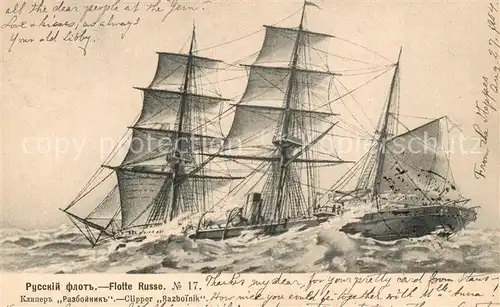 all the dear people at the Fern!
Love & kisses, as always
Your old Libby.
From the Steppes
Aug 2
Русскій флотъ.—Flotte Russe. № 17.
Клиперъ „Разбойникъ“.—Clipper „Razboïnik“.
Thanks, my dear, for your pretty card from
How nice you could be together with